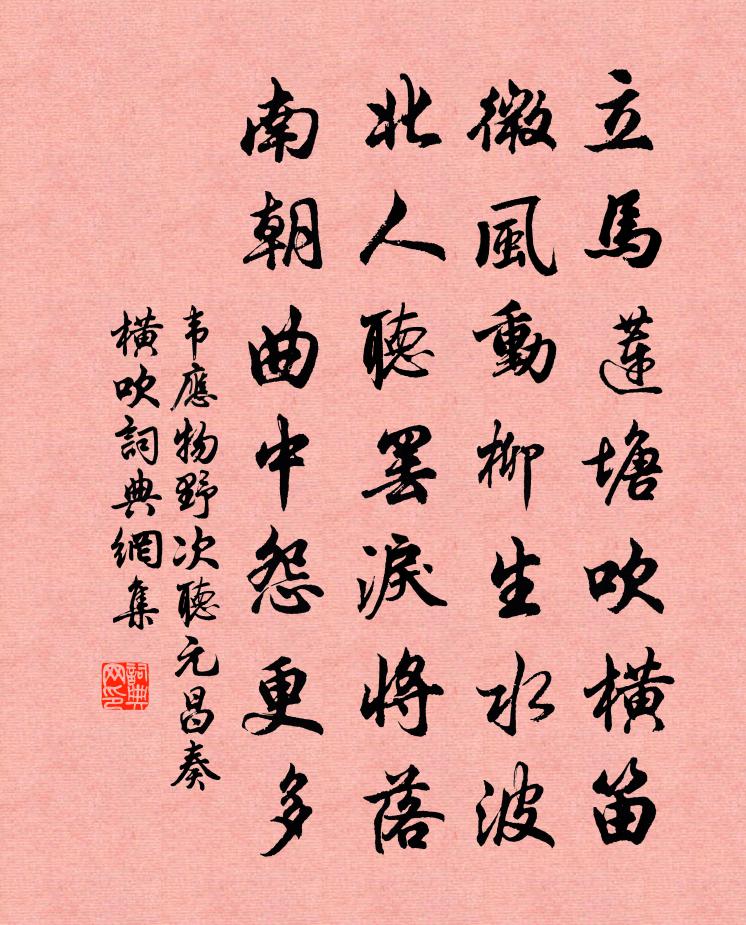 立馬蓮塘吹橫笛
微風動柳生水波
北人聽罷淚將落
南朝曲中怨更多
韦應物野次聽元昌奏
橫吹詞典網集
詞典
网印